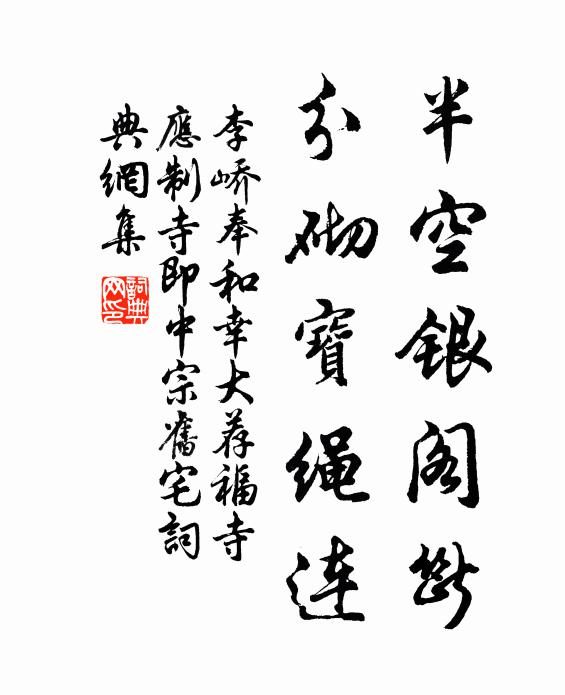 半空銀閣斷
分砌寶繩連
李嶠奉和幸大荐福寺
應制寺即中宗舊宅詞
典網集
詞典
网印